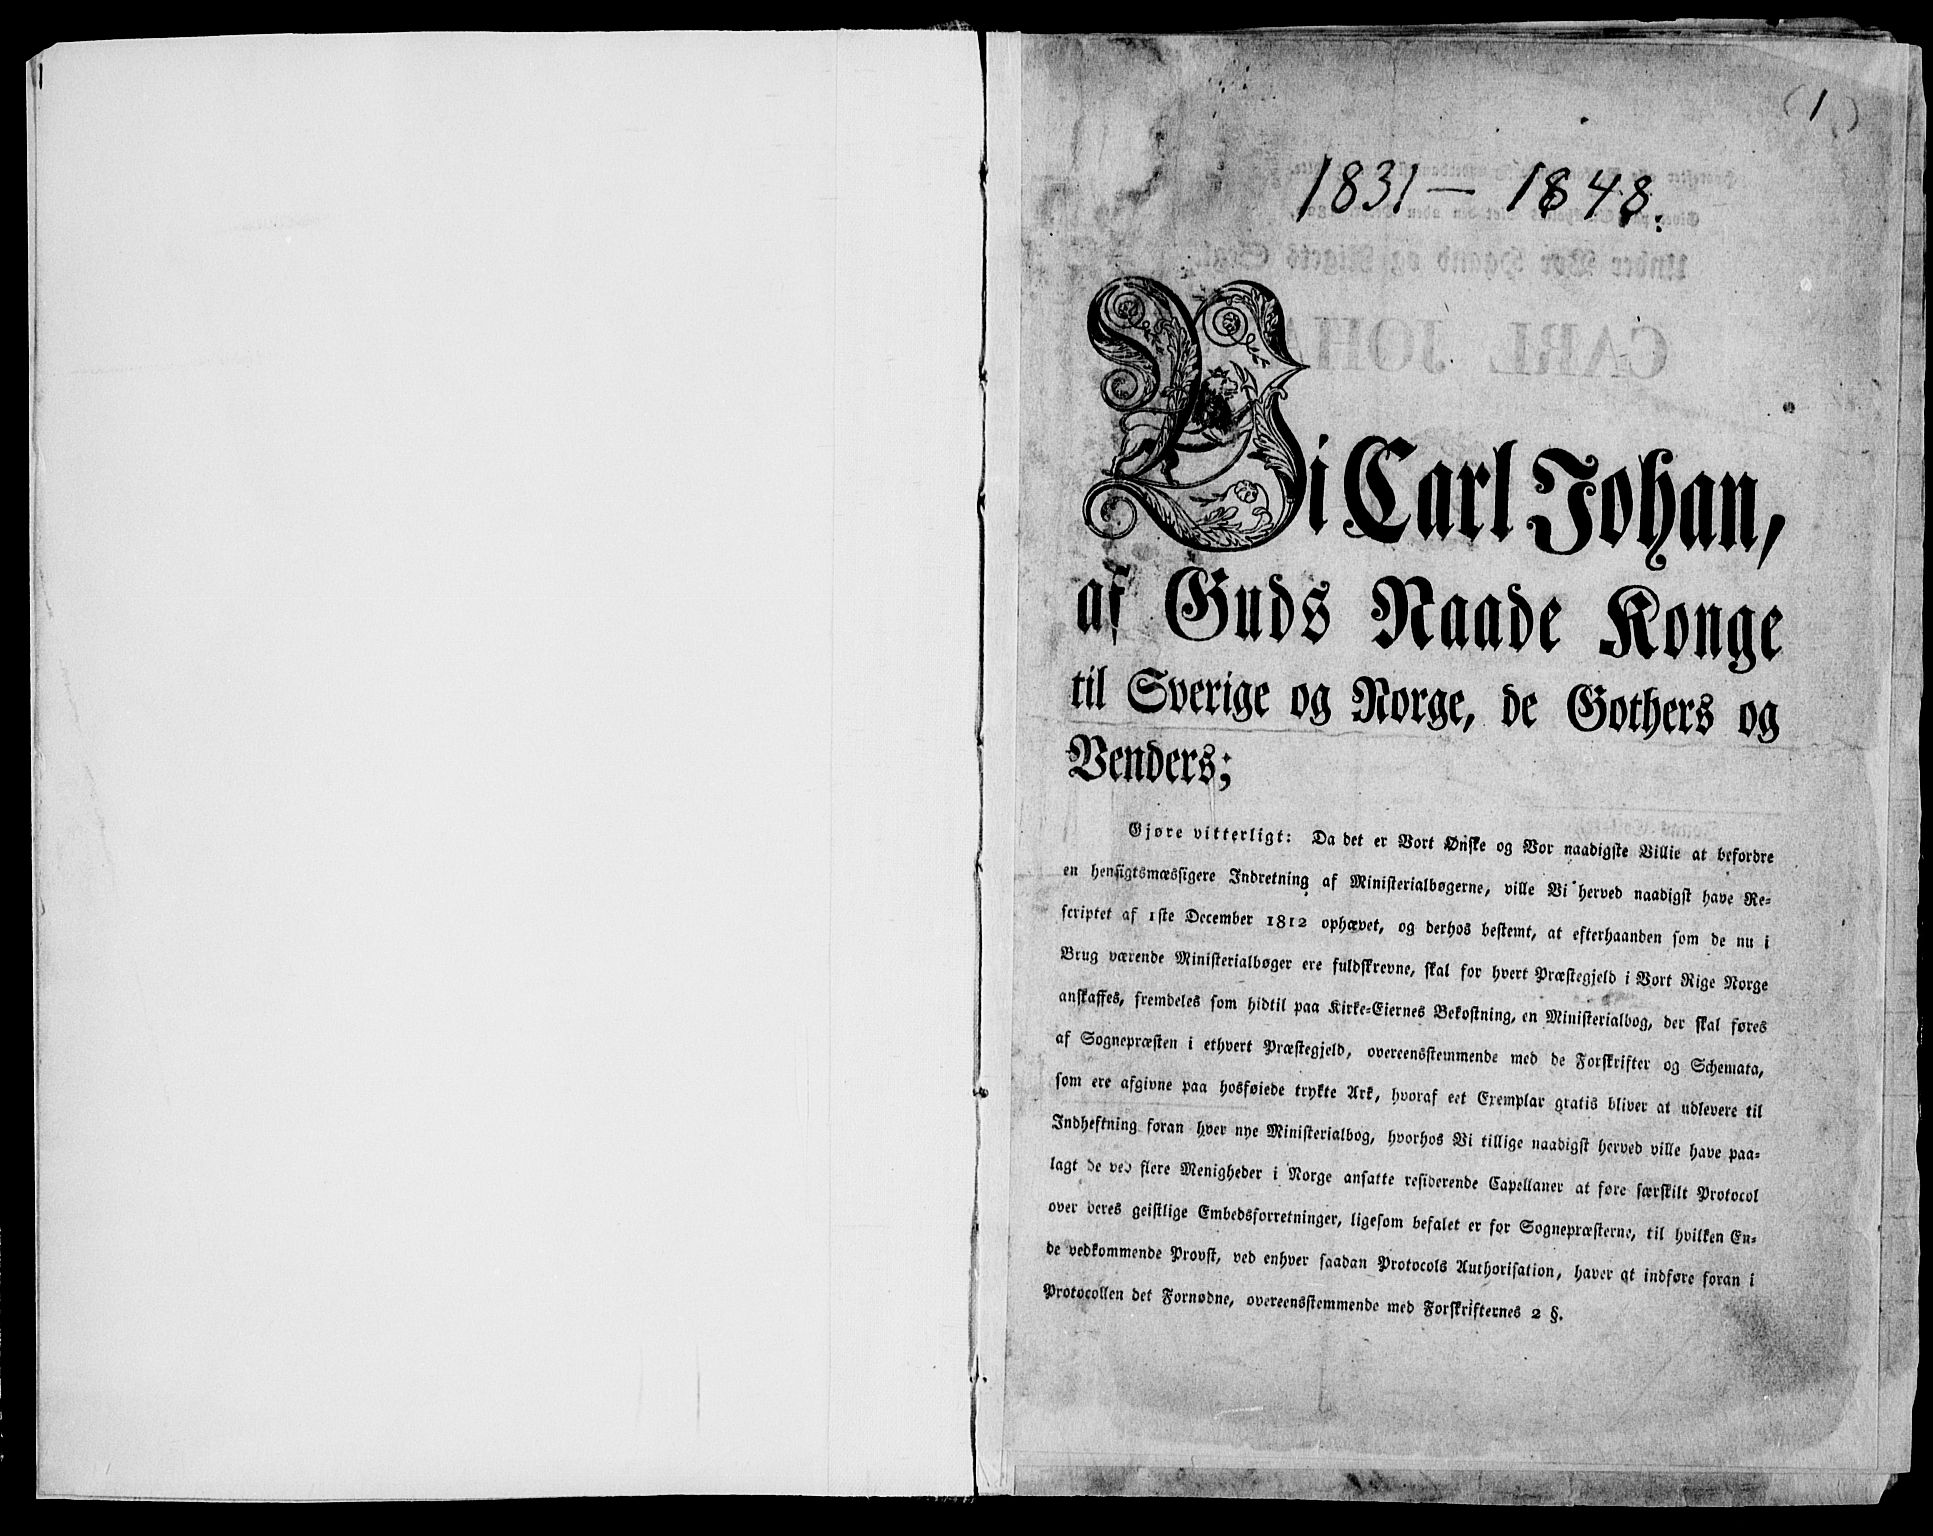 (1)
1831 — 1848.
Vi Carl Johan,
af Guds Naade Konge
til Sverige og Norge, de Gothers og
Venders;
Gjøre vitterligt: Da det er Vort Ønske og Vor naadigste Villie at befordre
en hensigtsmæssigere Indretning af Ministerialbøgerne, ville Vi herved naadigst have Re=
scriptet af 1ste December 1812 ophævet, og derhos bestemt, at efterhaanden som de nu i
Brug værende Ministerialbøger ere fuldskrevne, skal for hvert Præstegjeld i Vort Rige Norge
anskaffes, fremdeles som hidtil paa Kirke=Eiernes Bekostning, en Ministerialbog, der skal føres
af Sognepræsten i ethvert Præstegjeld, overeensstemmende med de Forskrifter og Schemata,
som ere afgivne paa hosføiede trykte Ark, hvoraf eet Exemplar gratis bliver at udlevere til
Indheftning foran hver nye Ministerialbog, hvorhos Vi tillige naadigst herved ville have paa=
lagt de ved flere Menigheder i Norge ansatte residerende Capellaner at føre særskilt Protocol
over deres geistlige Embedsforretninger, ligesom befalet er for Sognepræsterne, til hvilken En=
de vedkommende Provst, ved enhver saadan Protocols Authorisation, haver at indføre foran i
Protocollen det Fornødne, overeensstemmende med Forskrifternes 2 §.